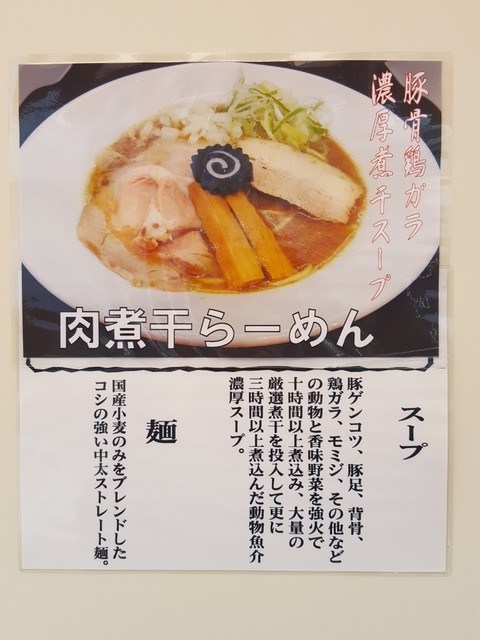 豚骨鶏ガラ
濃厚煮干スープ
肉煮干らーめん
スープ
豚ゲンコツ、豚足、背骨、
鶏ガラ、モミジ、その他など
の動物と香味野菜を強火で
十時間以上煮込み、大量の
厳選煮干を投入して更に
三時間以上煮込んだ動物魚介
濃厚スープ。
麺
国産小麦のみをブレンドした
コシの強い中太ストレート麺。